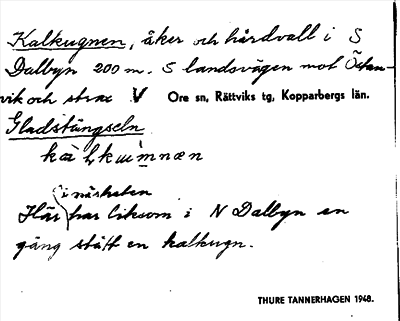 Kalkugnen, åker och hårdvall i S
Dalbyn 200 m. S landsvägen mot Östan-
vik och strax V Ore sn, Rättviks tg, Kopparbergs län.
Gladstängseln
i närheten
Här har liksom i N Dalbyn en
gång stått en kalkugn.
THURE TANNERHAGEN 1948.